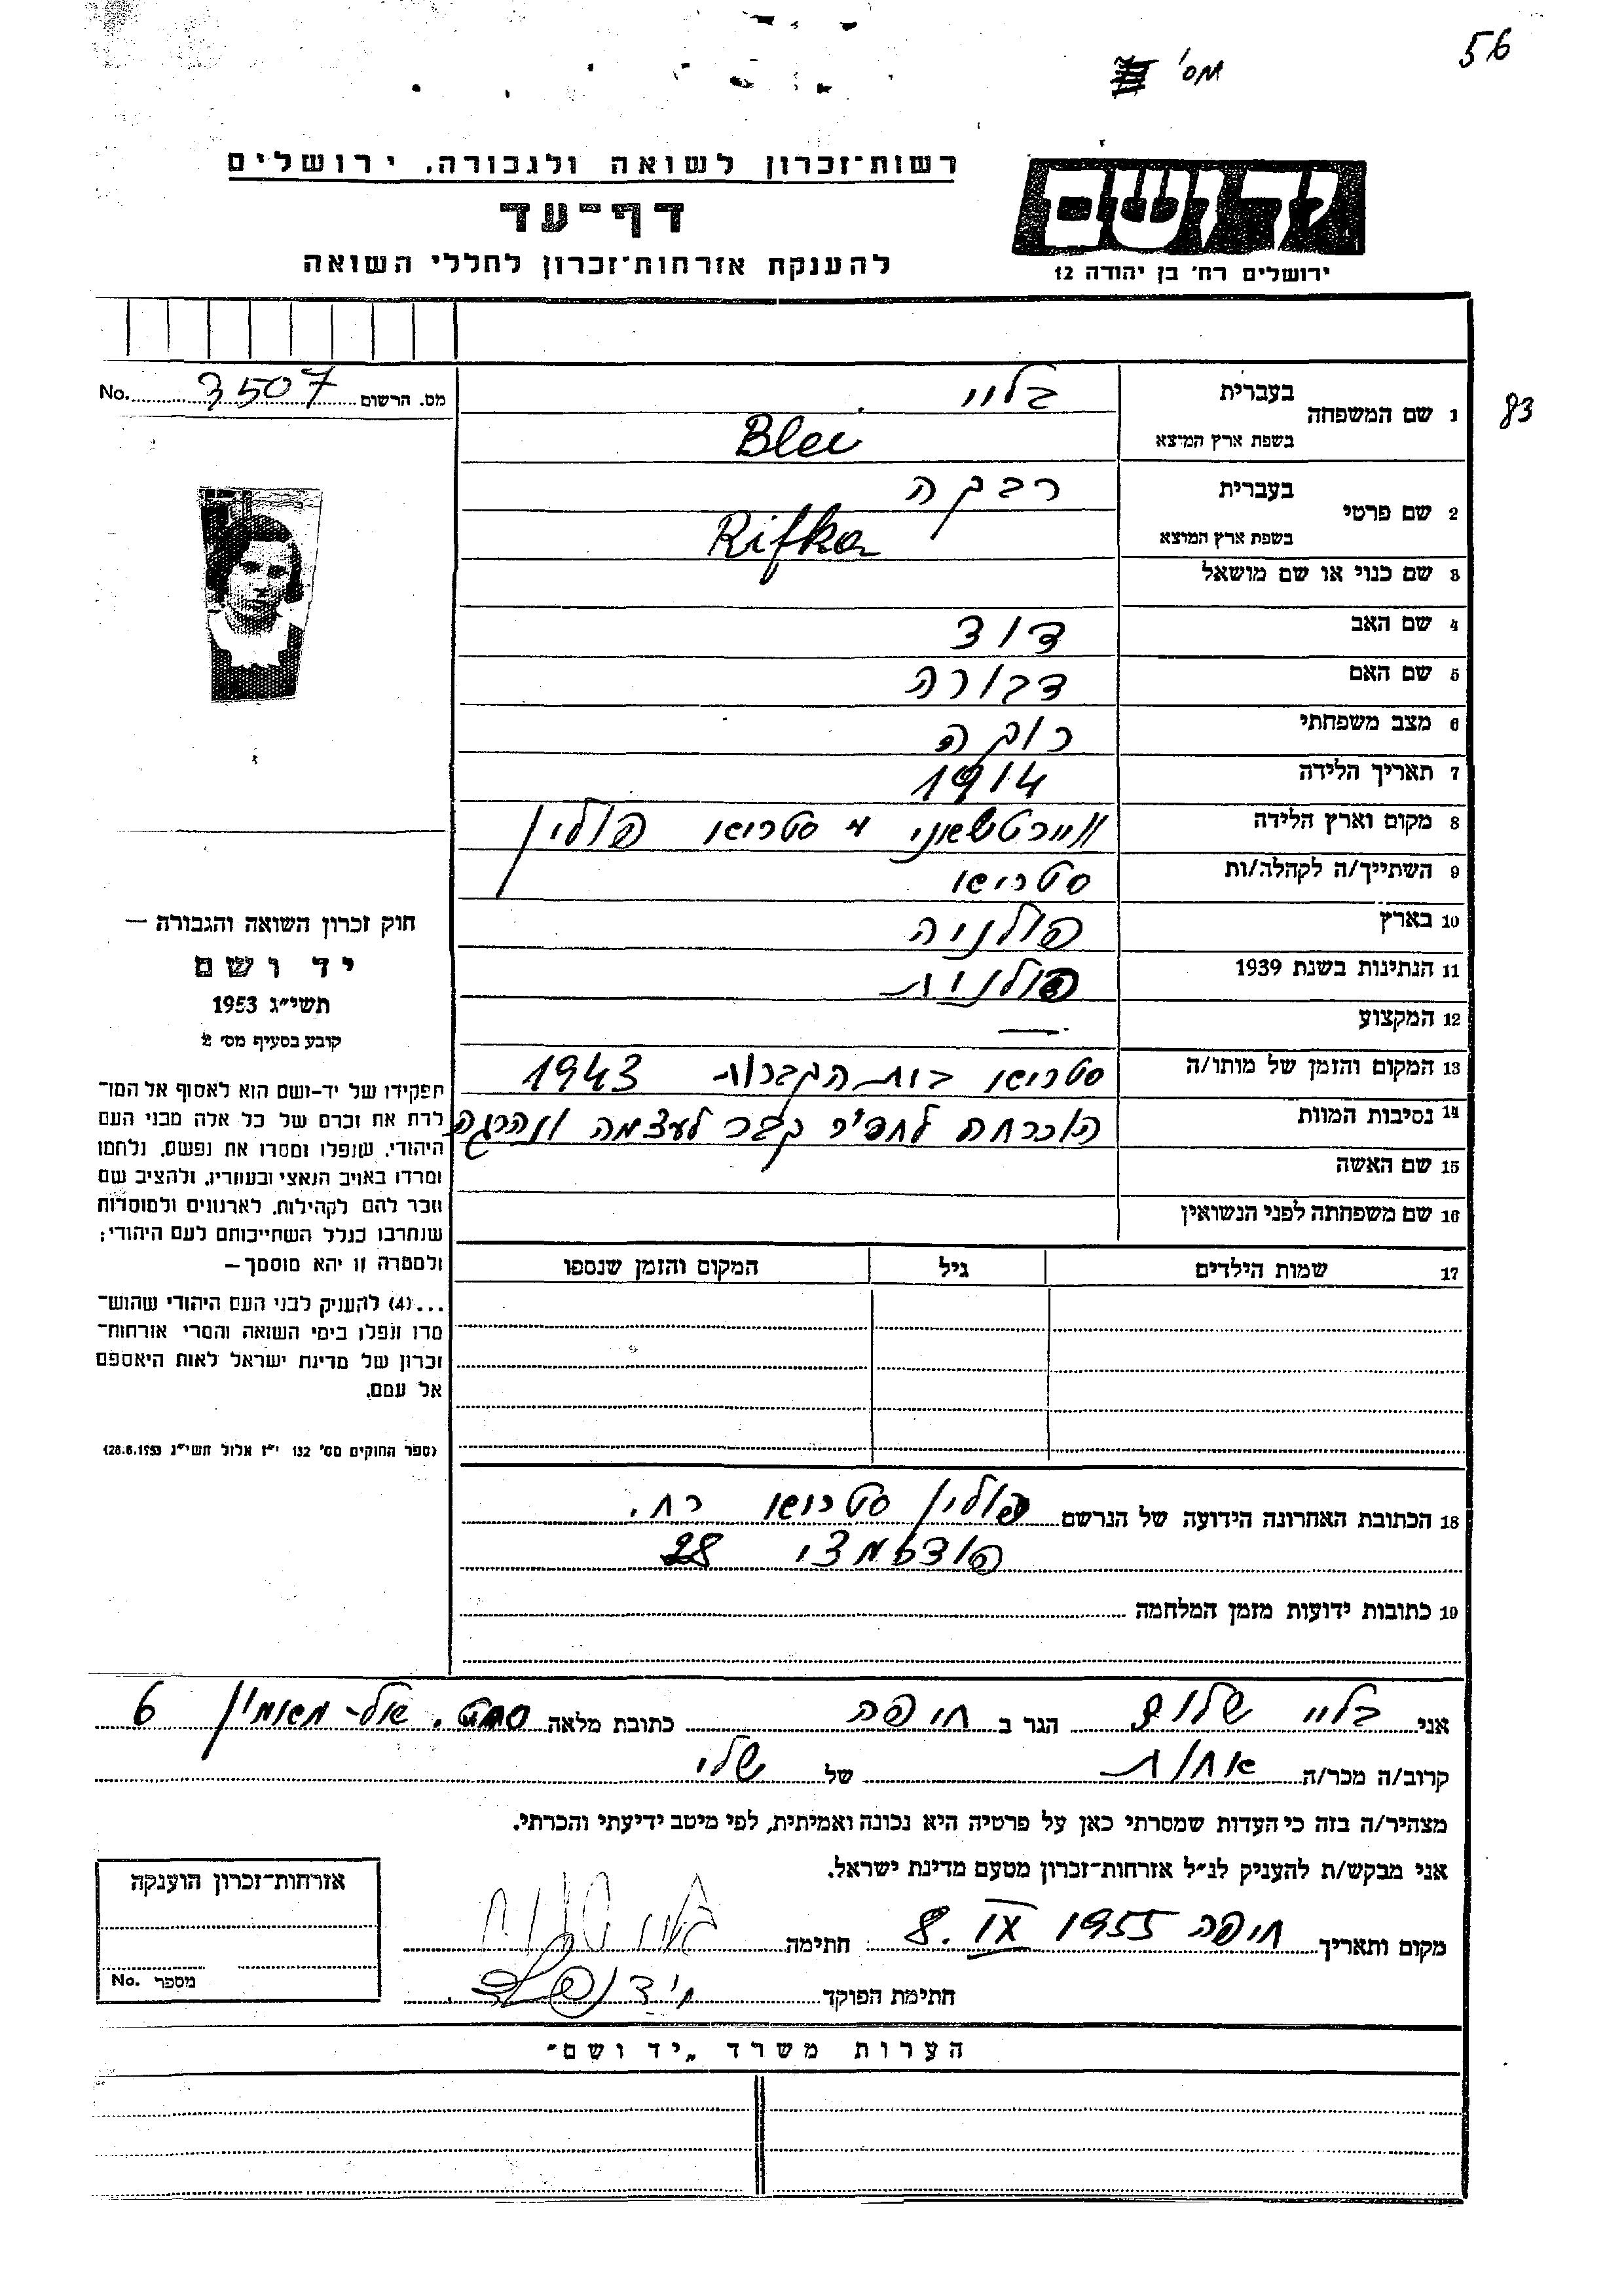 56
מס'
רשות־זכרון לשואה ולגבורה, ירושלים
יד ושם
דף־עד
להענקת אזרחות־זכרון לחללי השואה
ירושלים רח' בן יהודה 12
מס. הרשום 3507 No.
83
1 שם המשפחה בעברית בלוי
בשפת ארץ המוצא Blei
2 שם פרטי בעברית רבקה
בשפת ארץ המוצא Rifka
3 שם כנוי או שם מושאל
4 שם האב דוד
5 שם האם דבורה
6 מצב משפחתי רוקה
7 תאריך הלידה 1914
8 מקום וארץ הלידה סטריאו פולין
9 השתייך/ה לקהלה/ות סטריאו
10 בארץ פולניה
11 הנתינות בשנת 1939 פולנית
12 המקצוע —
13 המקום והזמן של מותו/ה סטריאו בית הקברות 1943
14 נסיבות המוות הוכרחה לחפיר קבר לעצמה ונהרגה
15 שם האשה
16 שם משפחתה לפני הנשואין
17 שמות הילדים גיל המקום והזמן שנספו
חוק זכרון השואה והגבורה —
יד ושם
תשי״ג 1953
קובע בסעיף מס' 2
תפקידו של יד-ושם הוא לאסוף אל המו־
לדת את זכרם של כל אלה מבני העם
היהודי, שנפלו ומסרו את נפשם, נלחמו
ומרדו באויב הנאצי ובעוזריו, ולהציב שם
וזכר להם לקהילות, לארגונים ולמוסדות
שנחרבו בגלל השתייכותם לעם היהודי;
ולמטרה זו יהא מוסמך —
...(4) להעניק לבני העם היהודי שהוש־
מדו ונפלו בימי השואה והמרי אזרחות־
זכרון של מדינת ישראל לאות היאספם
אל עמם.
(ספר החוקים מס' 132 י״ז אלול תשי״ג 28.8.1953)
18 הכתובת האחרונה הידועה של הנרשם פולין סטריאו רח.
28
19 כתובות ידועות מזמן המלחמה
אני בלוי שלום הגר ב חיפה כתובת מלאה אל- מאמין 6
קרוב/ה מכר/ה אחות של שלי
מצהיר/ה בזה כי העדות שמסרתי כאן על פרטיה היא נכונה ואמיתית, לפי מיטב ידיעתי והכרתי.
אני מבקש/ת להעניק לנ״ל אזרחות-זכרון מטעם מדינת ישראל.
מקום ותאריך חיפה 8. IX 1955 חתימה בלוי שלום
חתימת הפוקד
אזרחות־זכרון הוענקה
מספר No.
הערות משרד „יד ושם״